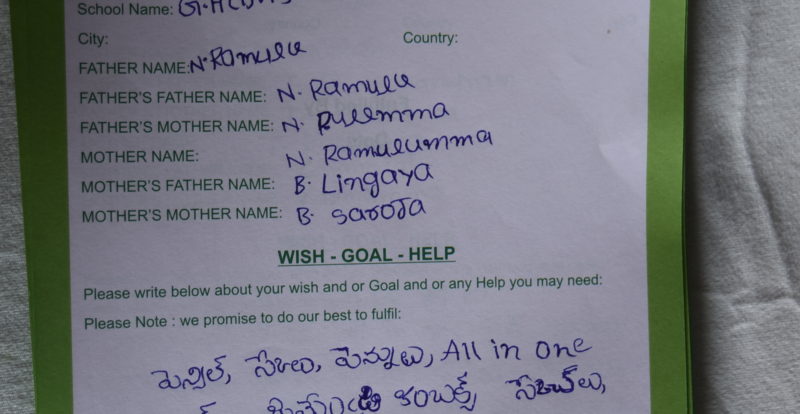 School Name:
City: Country:
FATHER NAME: N. Ramulu
FATHER'S FATHER NAME: N. Ramulu
FATHER'S MOTHER NAME: N.
MOTHER NAME: N. Ramulumma
MOTHER'S FATHER NAME: B. Lingaya
MOTHER'S MOTHER NAME: B. Saroja
WISH - GOAL - HELP
Please write below about your wish and or Goal and or any Help you may need:
Please Note : we promise to do our best to fulfil:
పెన్సిల్, పేజీలు, పెన్నులు, All in one